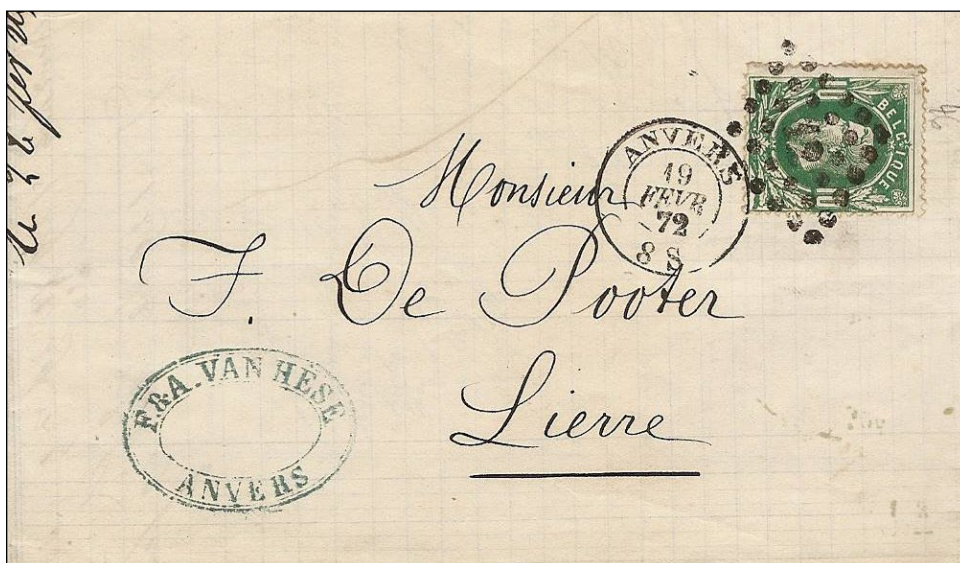 BELGIQUE
ANVERS
19
FEVR
72
8 S
Monsieur
F. De Pooter
Lierre
F. & A. VAN HESE
ANVERS